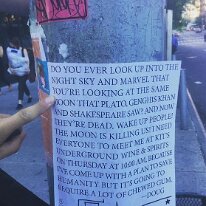 DO YOU EVER LOOK UP INTO THE
NIGHT SKY AND MARVEL THAT
YOU'RE LOOKING AT THE SAME
MOON THAT PLATO, GENGHIS KHAN
AND SHAKESPEARE SAW? AND NOW
THEY'RE DEAD. WAKE UP PEOPLE!
THE MOON IS KILLING US! I NEED
EVERYONE TO MEET ME AT KIT'S
UNDERGROUND WINE & SPIRITS
ON THURSDAY AT 10:00 AM, BECAUSE
I'VE COME UP WITH A PLAN TO SAVE
HUMANITY BUT IT'S GOING TO
REQUIRE A LOT OF CHEWED GUM.
—DOUG